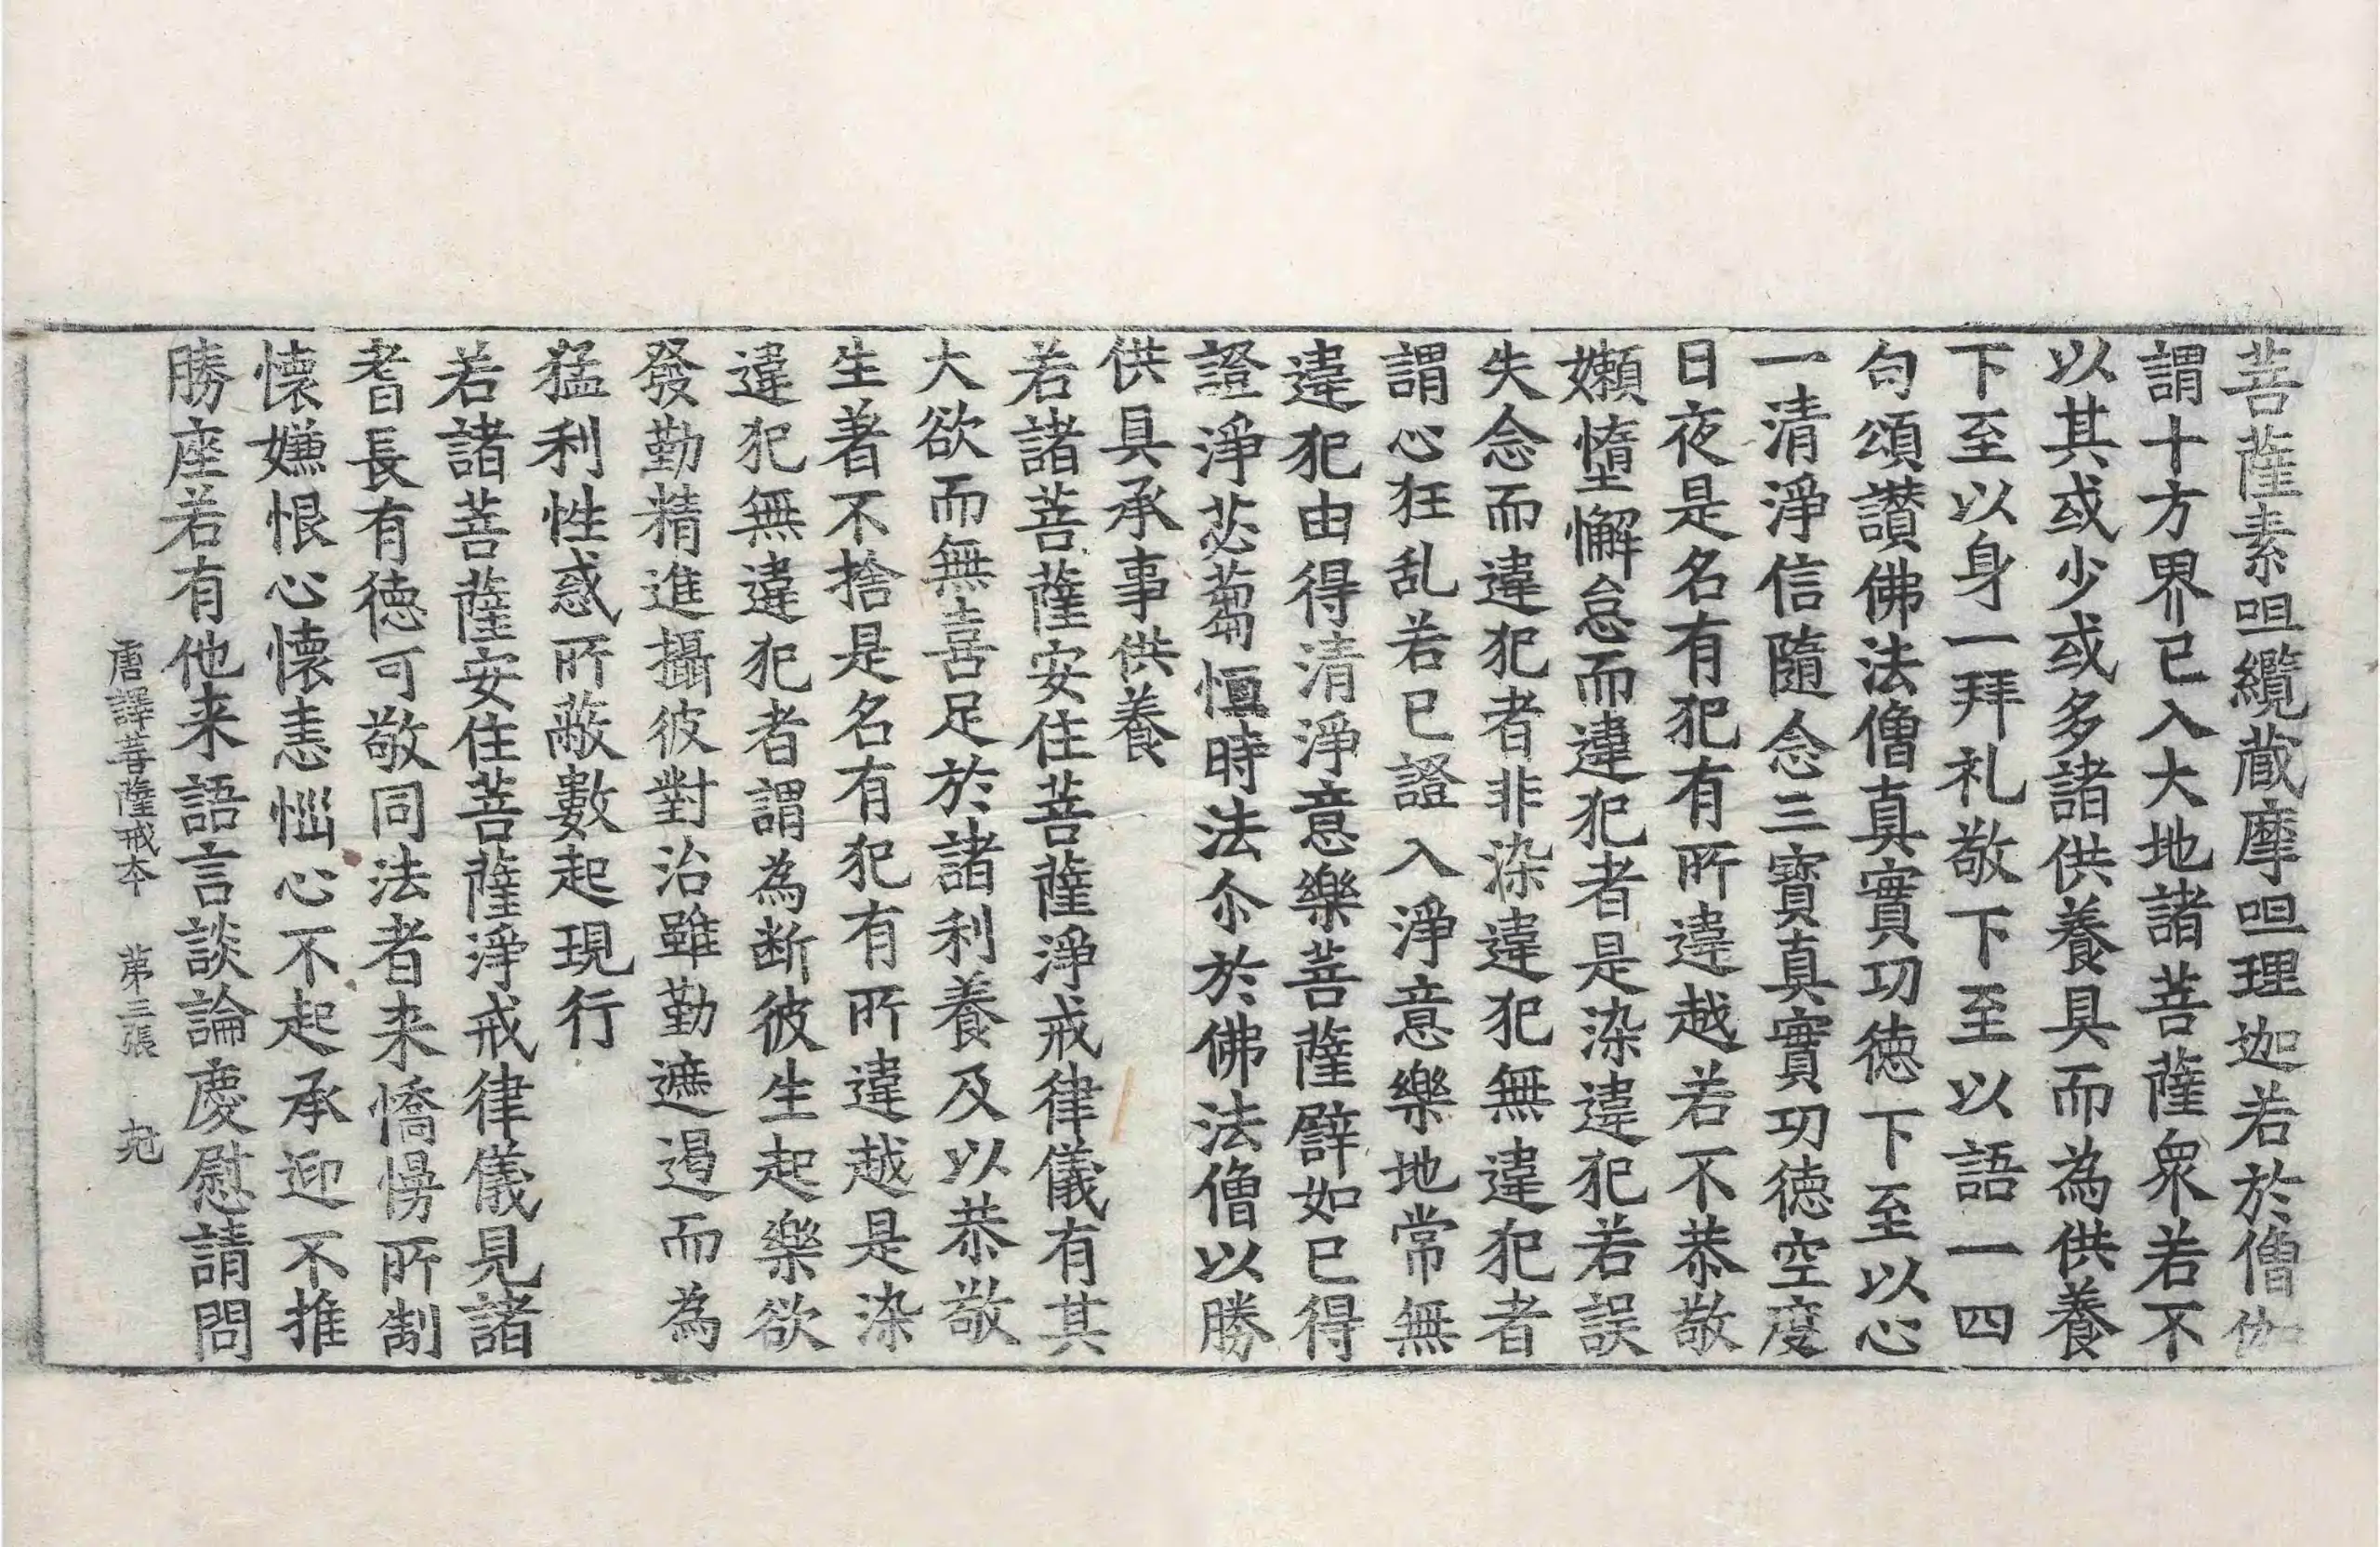 菩薩素呾纜藏摩呾理迦若於僧伽
謂十方界已入大地諸菩薩衆若不
以其或少或多諸供養具而為供養
下至以身一拜礼敬下至以語一四
句頌讃佛法僧真實功德下至以心
一清淨信隨念三寶真實功德空度
日夜是名有犯有所違越若不恭敬
嬾惰懈怠而違犯者是染違犯若誤
失念而違犯者非染違犯無違犯者
謂心狂乱若已證入淨意樂地常無
違犯由得清淨意樂菩薩譬如已得
證淨苾蒭恒時法尒於佛法僧以勝
供具承事供養
若諸菩薩安住菩薩淨戒律儀有其
大欲而無喜足於諸利養及以恭敬
生著不捨是名有犯有所違越是染
違犯無違犯者謂為断彼生起樂欲
發勤精進攝彼對治雖勤遮遏而為
猛利性惑所蔽數起現行
若諸菩薩安住菩薩淨戒律儀見諸
耆長有德可敬同法者来憍慢所制
懷嫌恨心懷恚惱心不起承迎不推
勝座若有他来語言談論慶慰請問
唐譯菩薩戒本 第三張